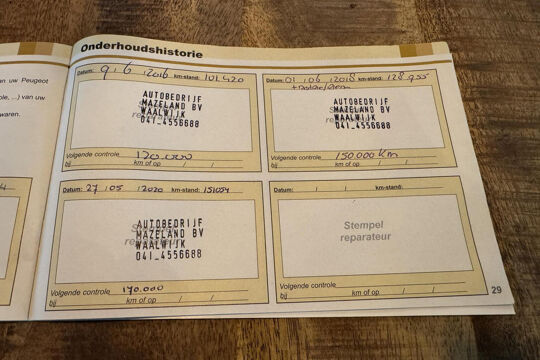 Onderhoudshistorie
an uw Peugeot
ole, ...) van uw
waren.
Datum: 9 / 6 / 2016 km-stand: 101.420
AUTOBEDRIJF
MAZELAND BV
WAALWIJK
041_4556688
Volgende controle 120.000
bij km of op / /
Datum: 01 / 06 / 2018 km-stand: 128 955
AUTOBEDRIJF
MAZELAND BV
WAALWIJK
041_4556688
Volgende controle 150.000 Km
bij km of op / /
Datum: 27 / 05 / 2020 km-stand: 151054
AUTOBEDRIJF
MAZELAND BV
WAALWIJK
041_4556688
Volgende controle 170.000
bij km of op / /
Datum: / / km-stand:
Stempel
reparateur
Volgende controle
bij km of op / /
29